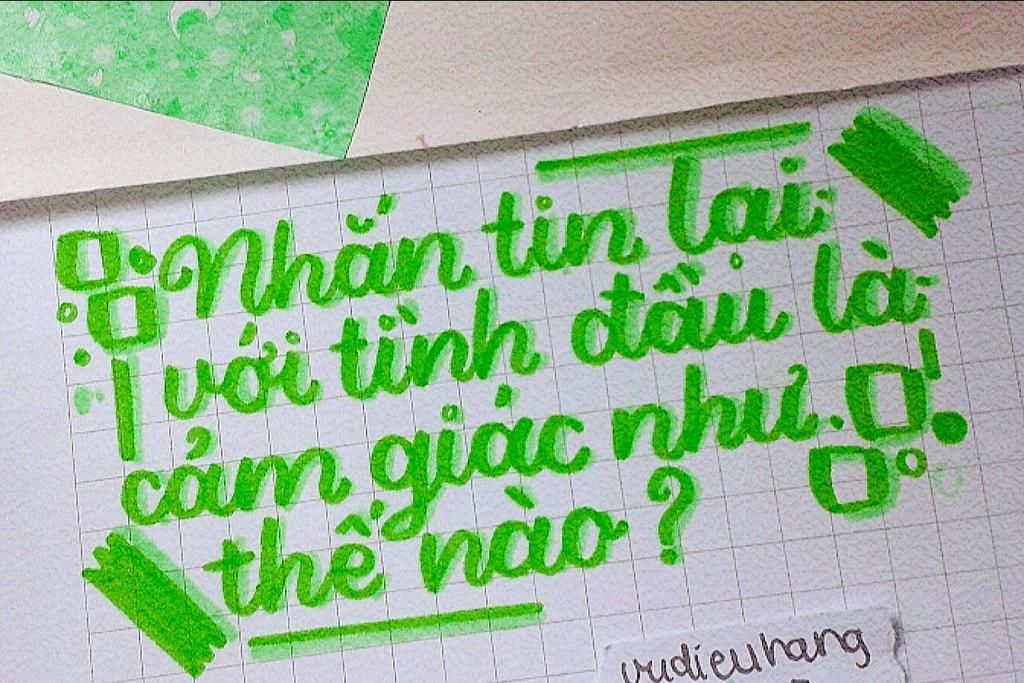 Nhắn tin lại
với tình đầu là
cảm giác như
thế nào?
vudieuhang